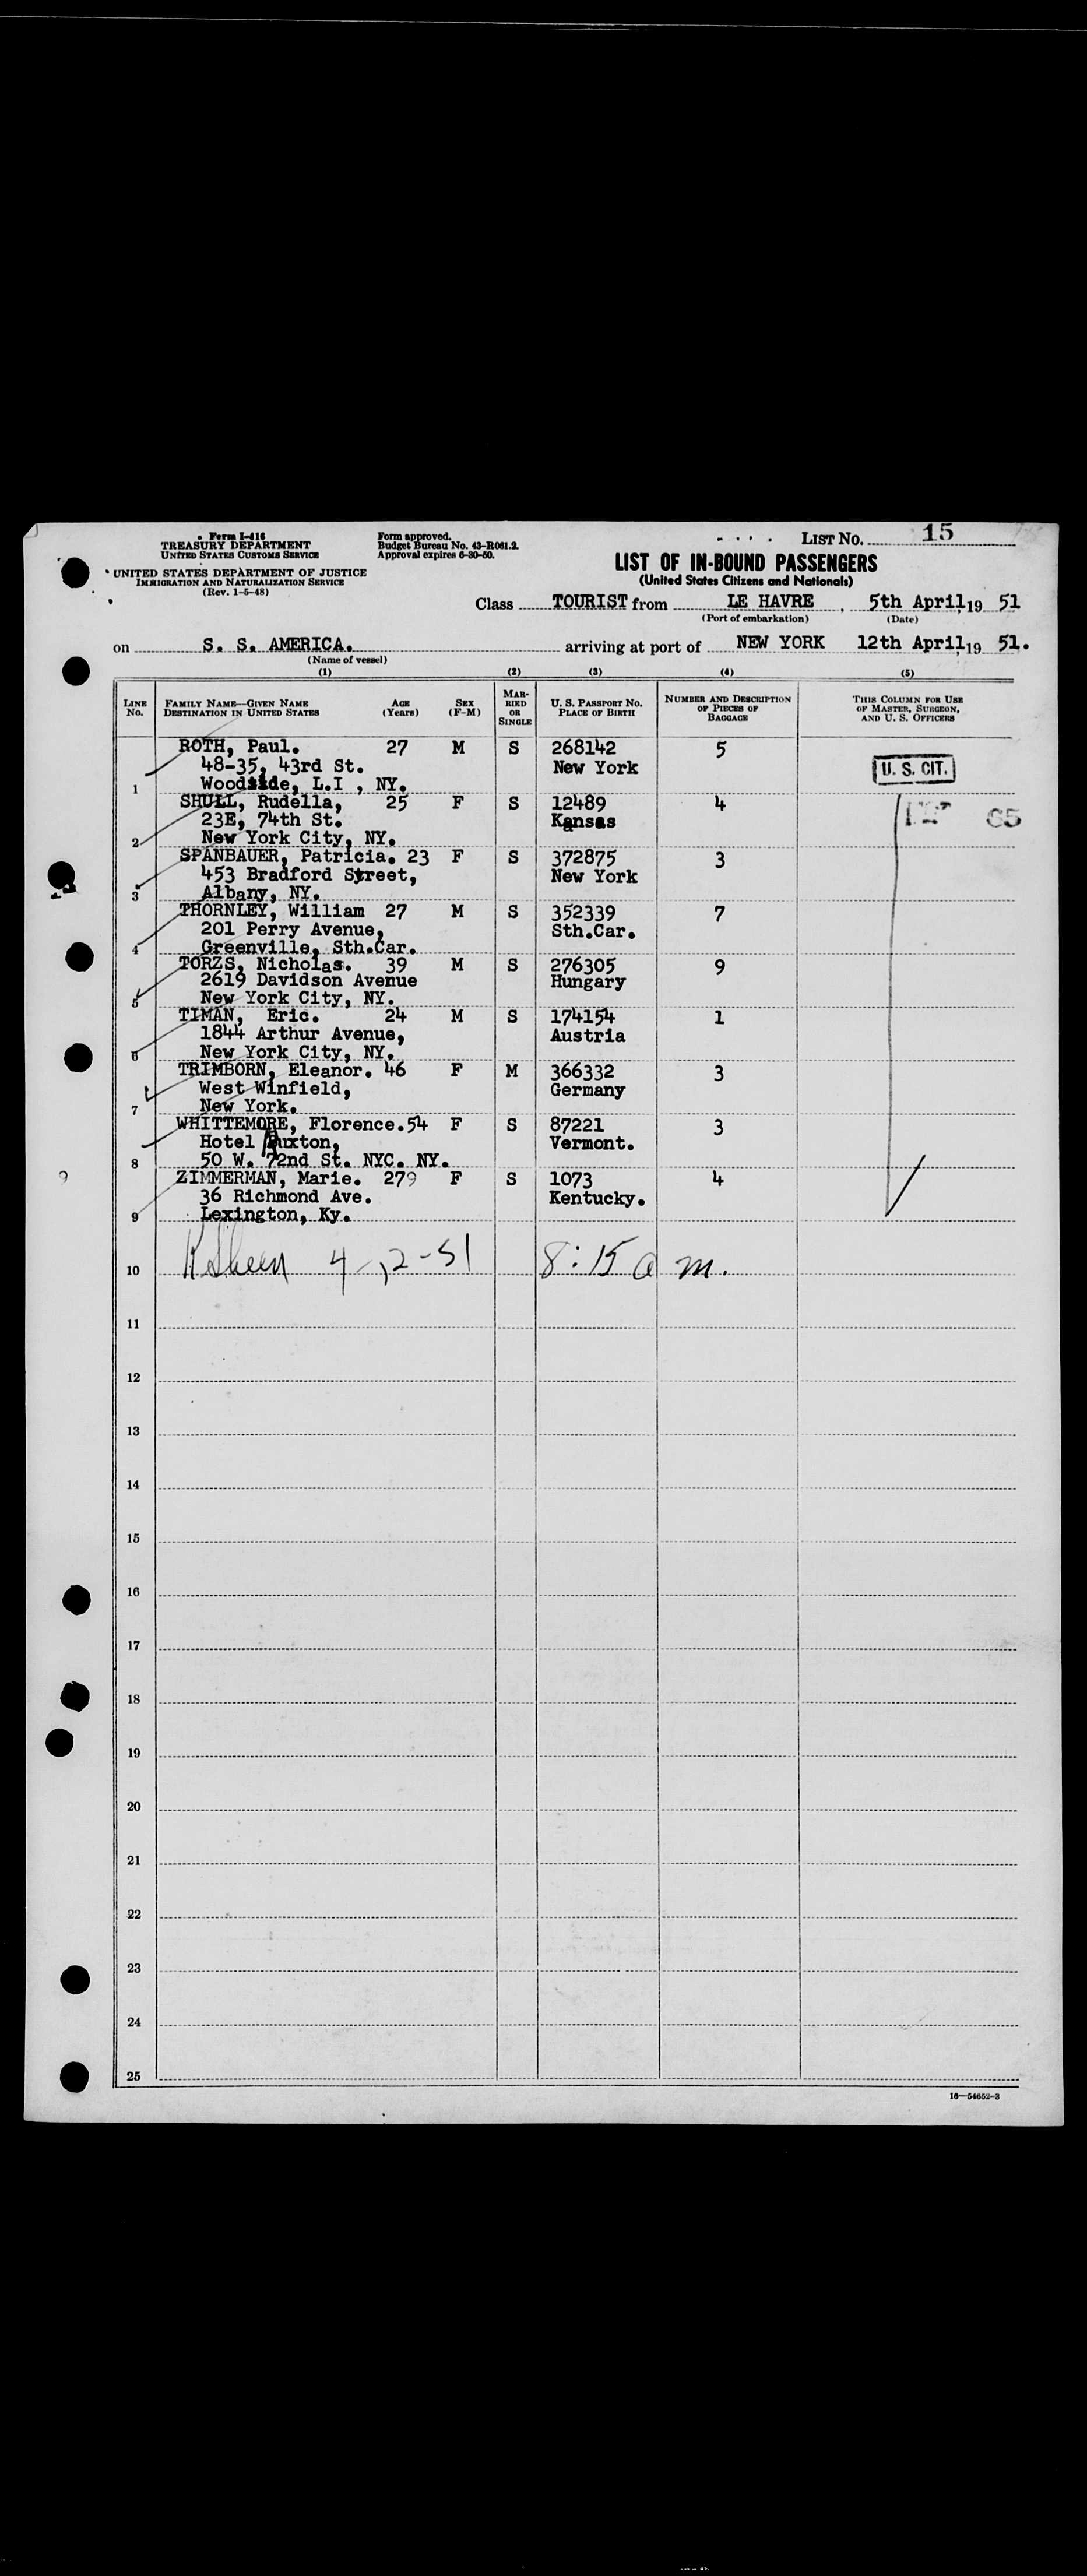 Form I-416
TREASURY DEPARTMENT
UNITED STATES CUSTOMS SERVICE
UNITED STATES DEPARTMENT OF JUSTICE
IMMIGRATION AND NATURALIZATION SERVICE
(Rev. 1-5-48)
Form approved.
Budget Bureau No. 43-R061.2.
Approval expires 6-30-50.
LIST NO. 15
LIST OF IN-BOUND PASSENGERS
(United States Citizens and Nationals)
Class TOURIST from LE HAVRE, 5th April, 19 51
(Port of embarkation) (Date)
on S. S. AMERICA. arriving at port of NEW YORK 12th April, 19 51.
(Name of vessel)
(1) (2) (3) (4) (5)
LINE NO. FAMILY NAME—GIVEN NAME DESTINATION IN UNITED STATES AGE (Years) SEX (F-M) MARRIED OR SINGLE U. S. PASSPORT NO. PLACE OF BIRTH NUMBER AND DESCRIPTION OF PIECES OF BAGGAGE THIS COLUMN FOR USE OF MASTER, SURGEON, AND U. S. OFFICERS
ROTH, Paul. 27 M S 268142 5
48-35, 43rd St. New York U. S. CIT.
1 Woodside, L.I , NY.
SHULL, Rudella, 25 F S 12489 4
23E, 74th St. Kansas 65
2 New York City, NY.
SPANBAUER, Patricia. 23 F S 372875 3
453 Bradford Street, New York
3 Albany, NY.
THORNLEY, William 27 M S 352339 7
201 Perry Avenue, Sth.Car.
4 Greenville, Sth.Car.
TORZS, Nicholas. 39 M S 276305 9
2619 Davidson Avenue Hungary
5 New York City, NY.
TIMAN, Eric. 24 M S 174154 1
1844 Arthur Avenue, Austria
6 New York City, NY.
TRIMBORN, Eleanor. 46 F M 366332 3
West Winfield, Germany
7 New York.
WHITTEMORE, Florence. 54 F S 87221 3
Hotel Ruxton, Vermont.
8 50 W. 72nd St. NYC. NY.
9 ZIMMERMAN, Marie. 279 F S 1073 4
36 Richmond Ave. Kentucky.
9 Lexington, Ky.
10 4-12-51 8:15 a m.
11
12
13
14
15
16
17
18
19
20
21
22
23
24
25
16—54652-3